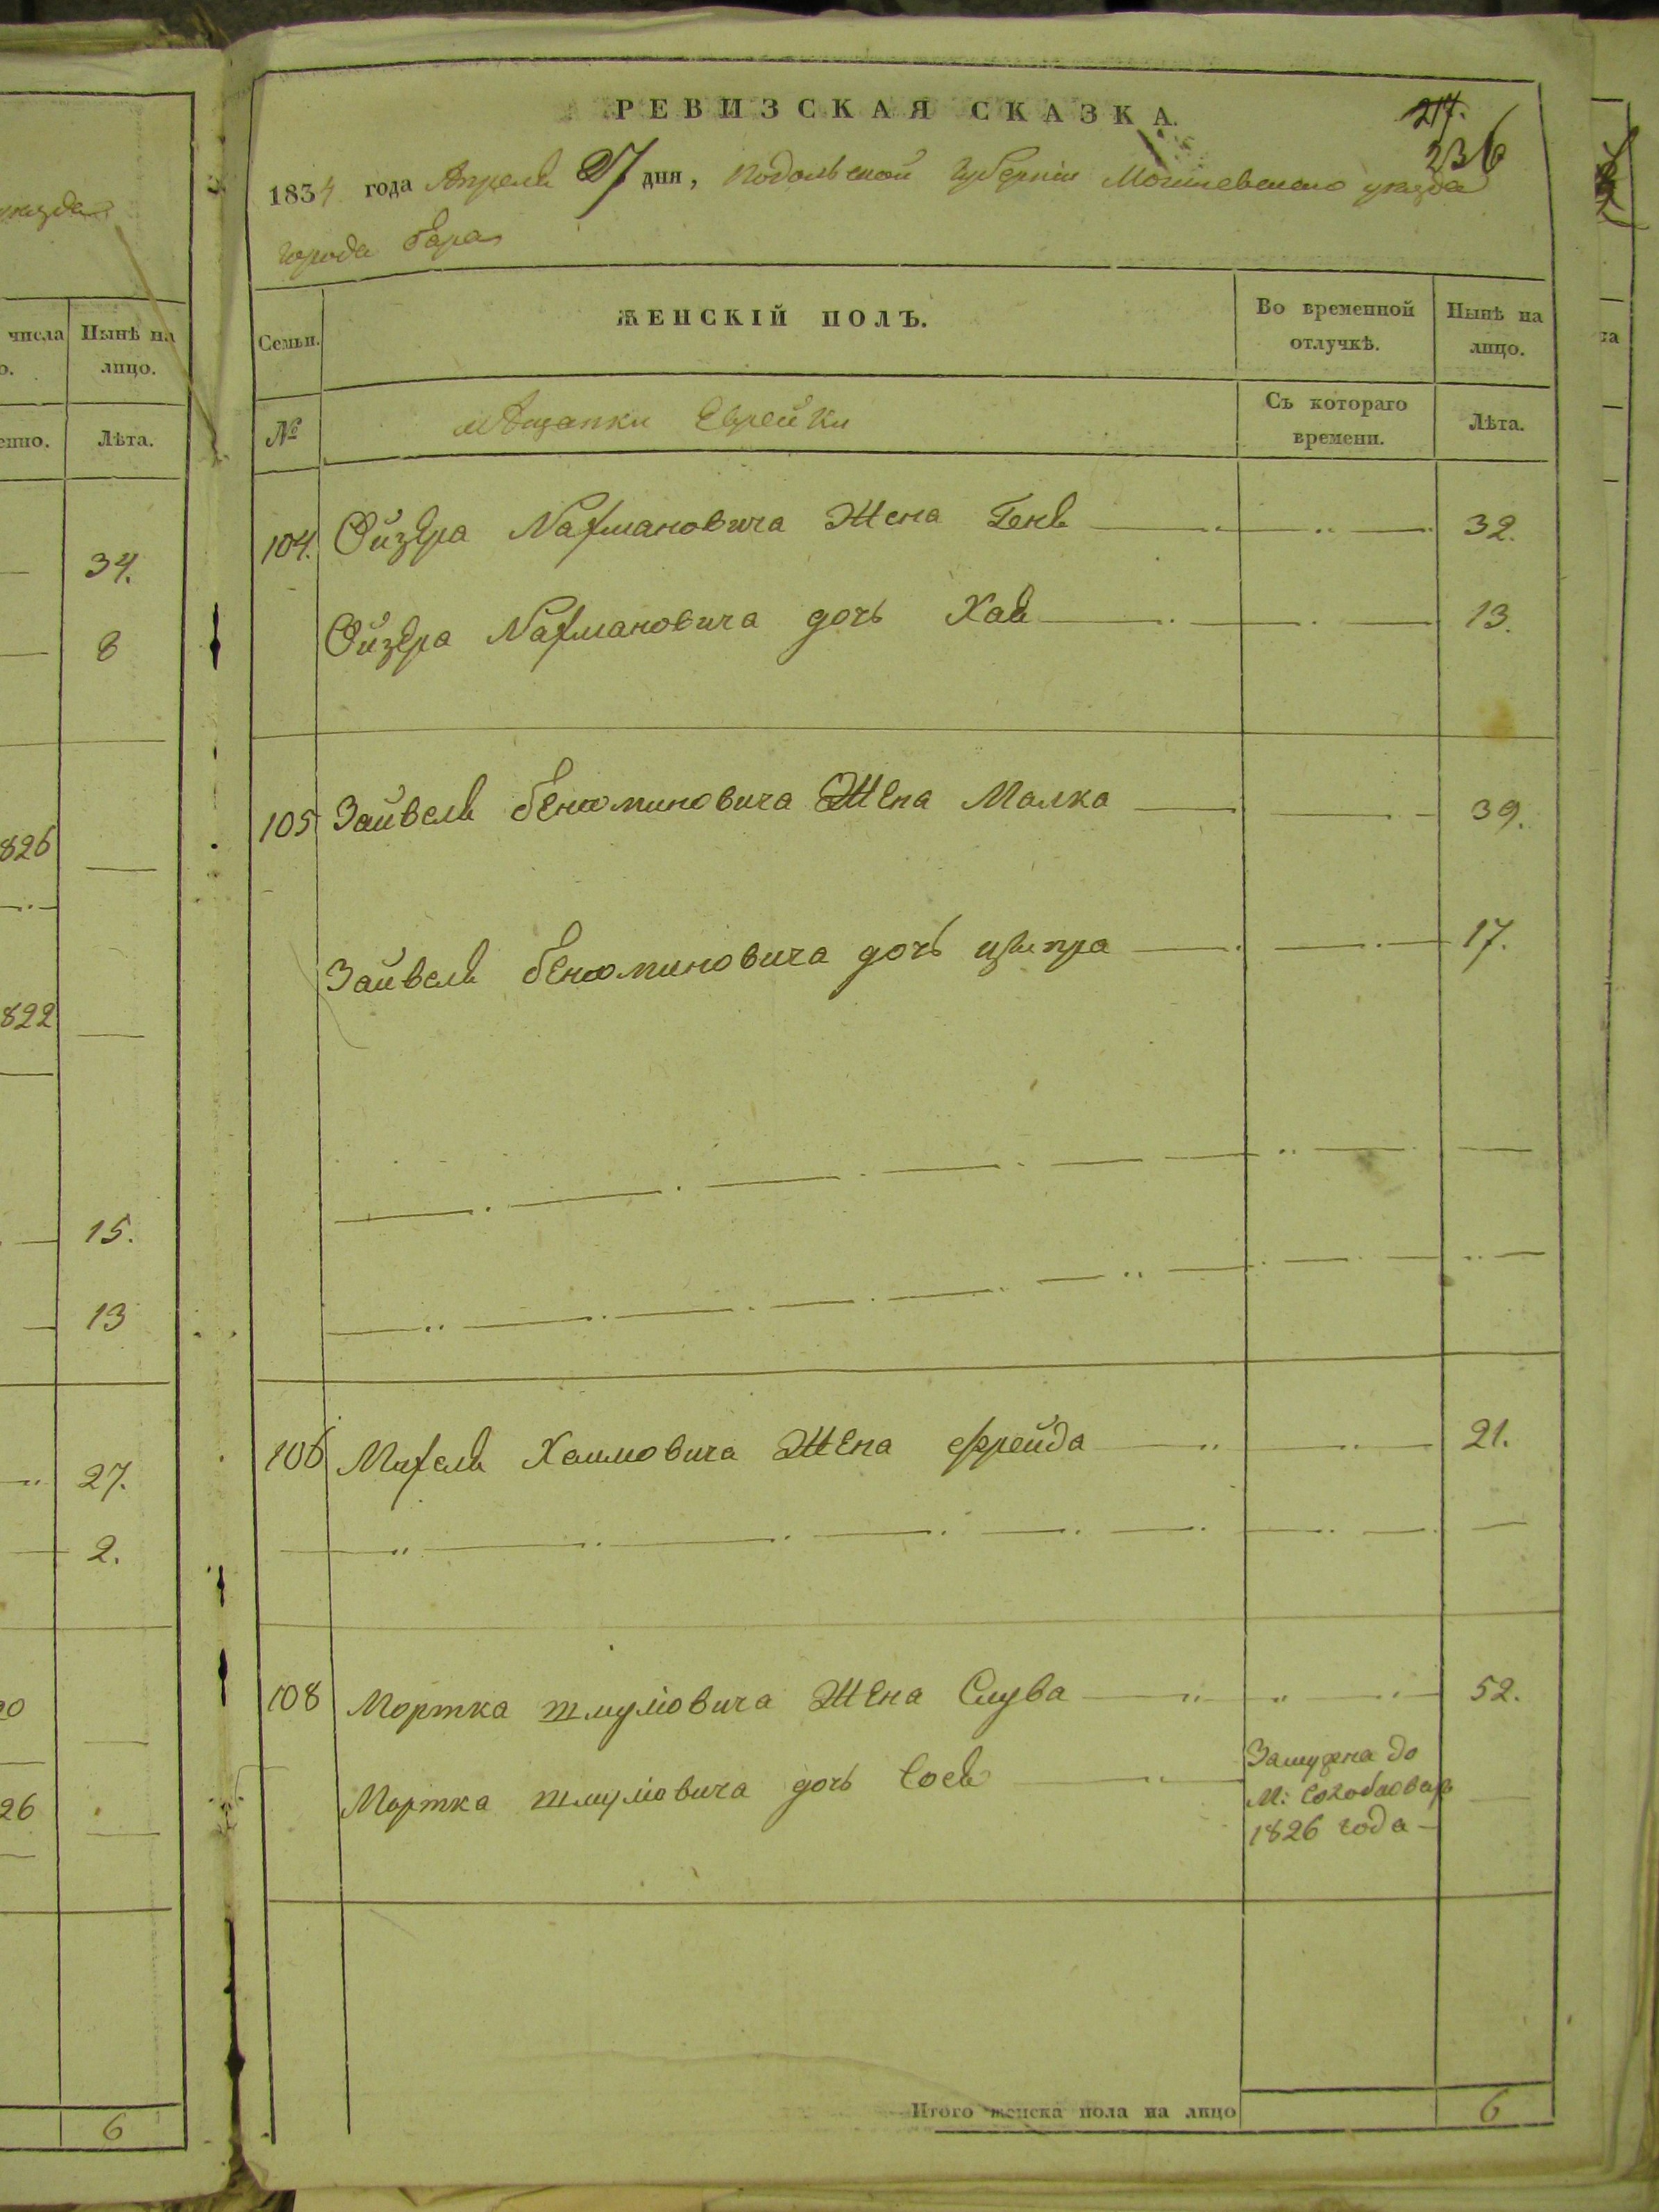 РЕВИЗСКАЯ СКАЗКА.
217.
236
1834 года Апреля 27 дня, Подольской Губернии Могилевского уезда
города Бара
уезда
числа
Нынѣ на
лицо.
Лѣта.
34.
8
826
822
15.
13
27.
2.
26
6
Семьи.
ЖЕНСКІЙ ПОЛЪ.
Во временной
отлучкѣ.
Нынѣ на
лицо.
№
мѣщанки Еврейки
Съ котораго
времени.
Лѣта.
104. Ойзера Нахмановича Жена Геня 32.
Ойзера Нахмановича дочь Хая 13.
105 Зайвеля Бенюминовича Жена Малка 39.
Зайвеля Бенюминовича дочь Ципра 17.
106 Михеля Хаимовича Жена Фрейда 21.
108 Мортка Шмулiовича Жена Слува 52.
Мортка Шмулiовича дочь
Замужна до
М:
1826 года
Итого женска пола на лицо 6